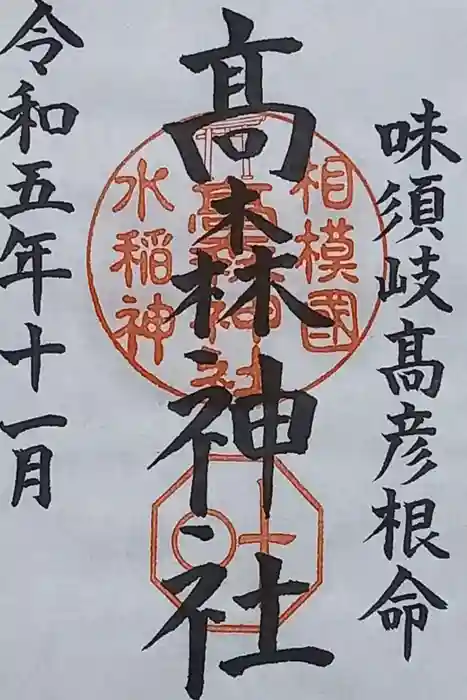 味須岐髙彦根命
髙森神社
令和五年十一月
相模國
髙森神社
水稲神